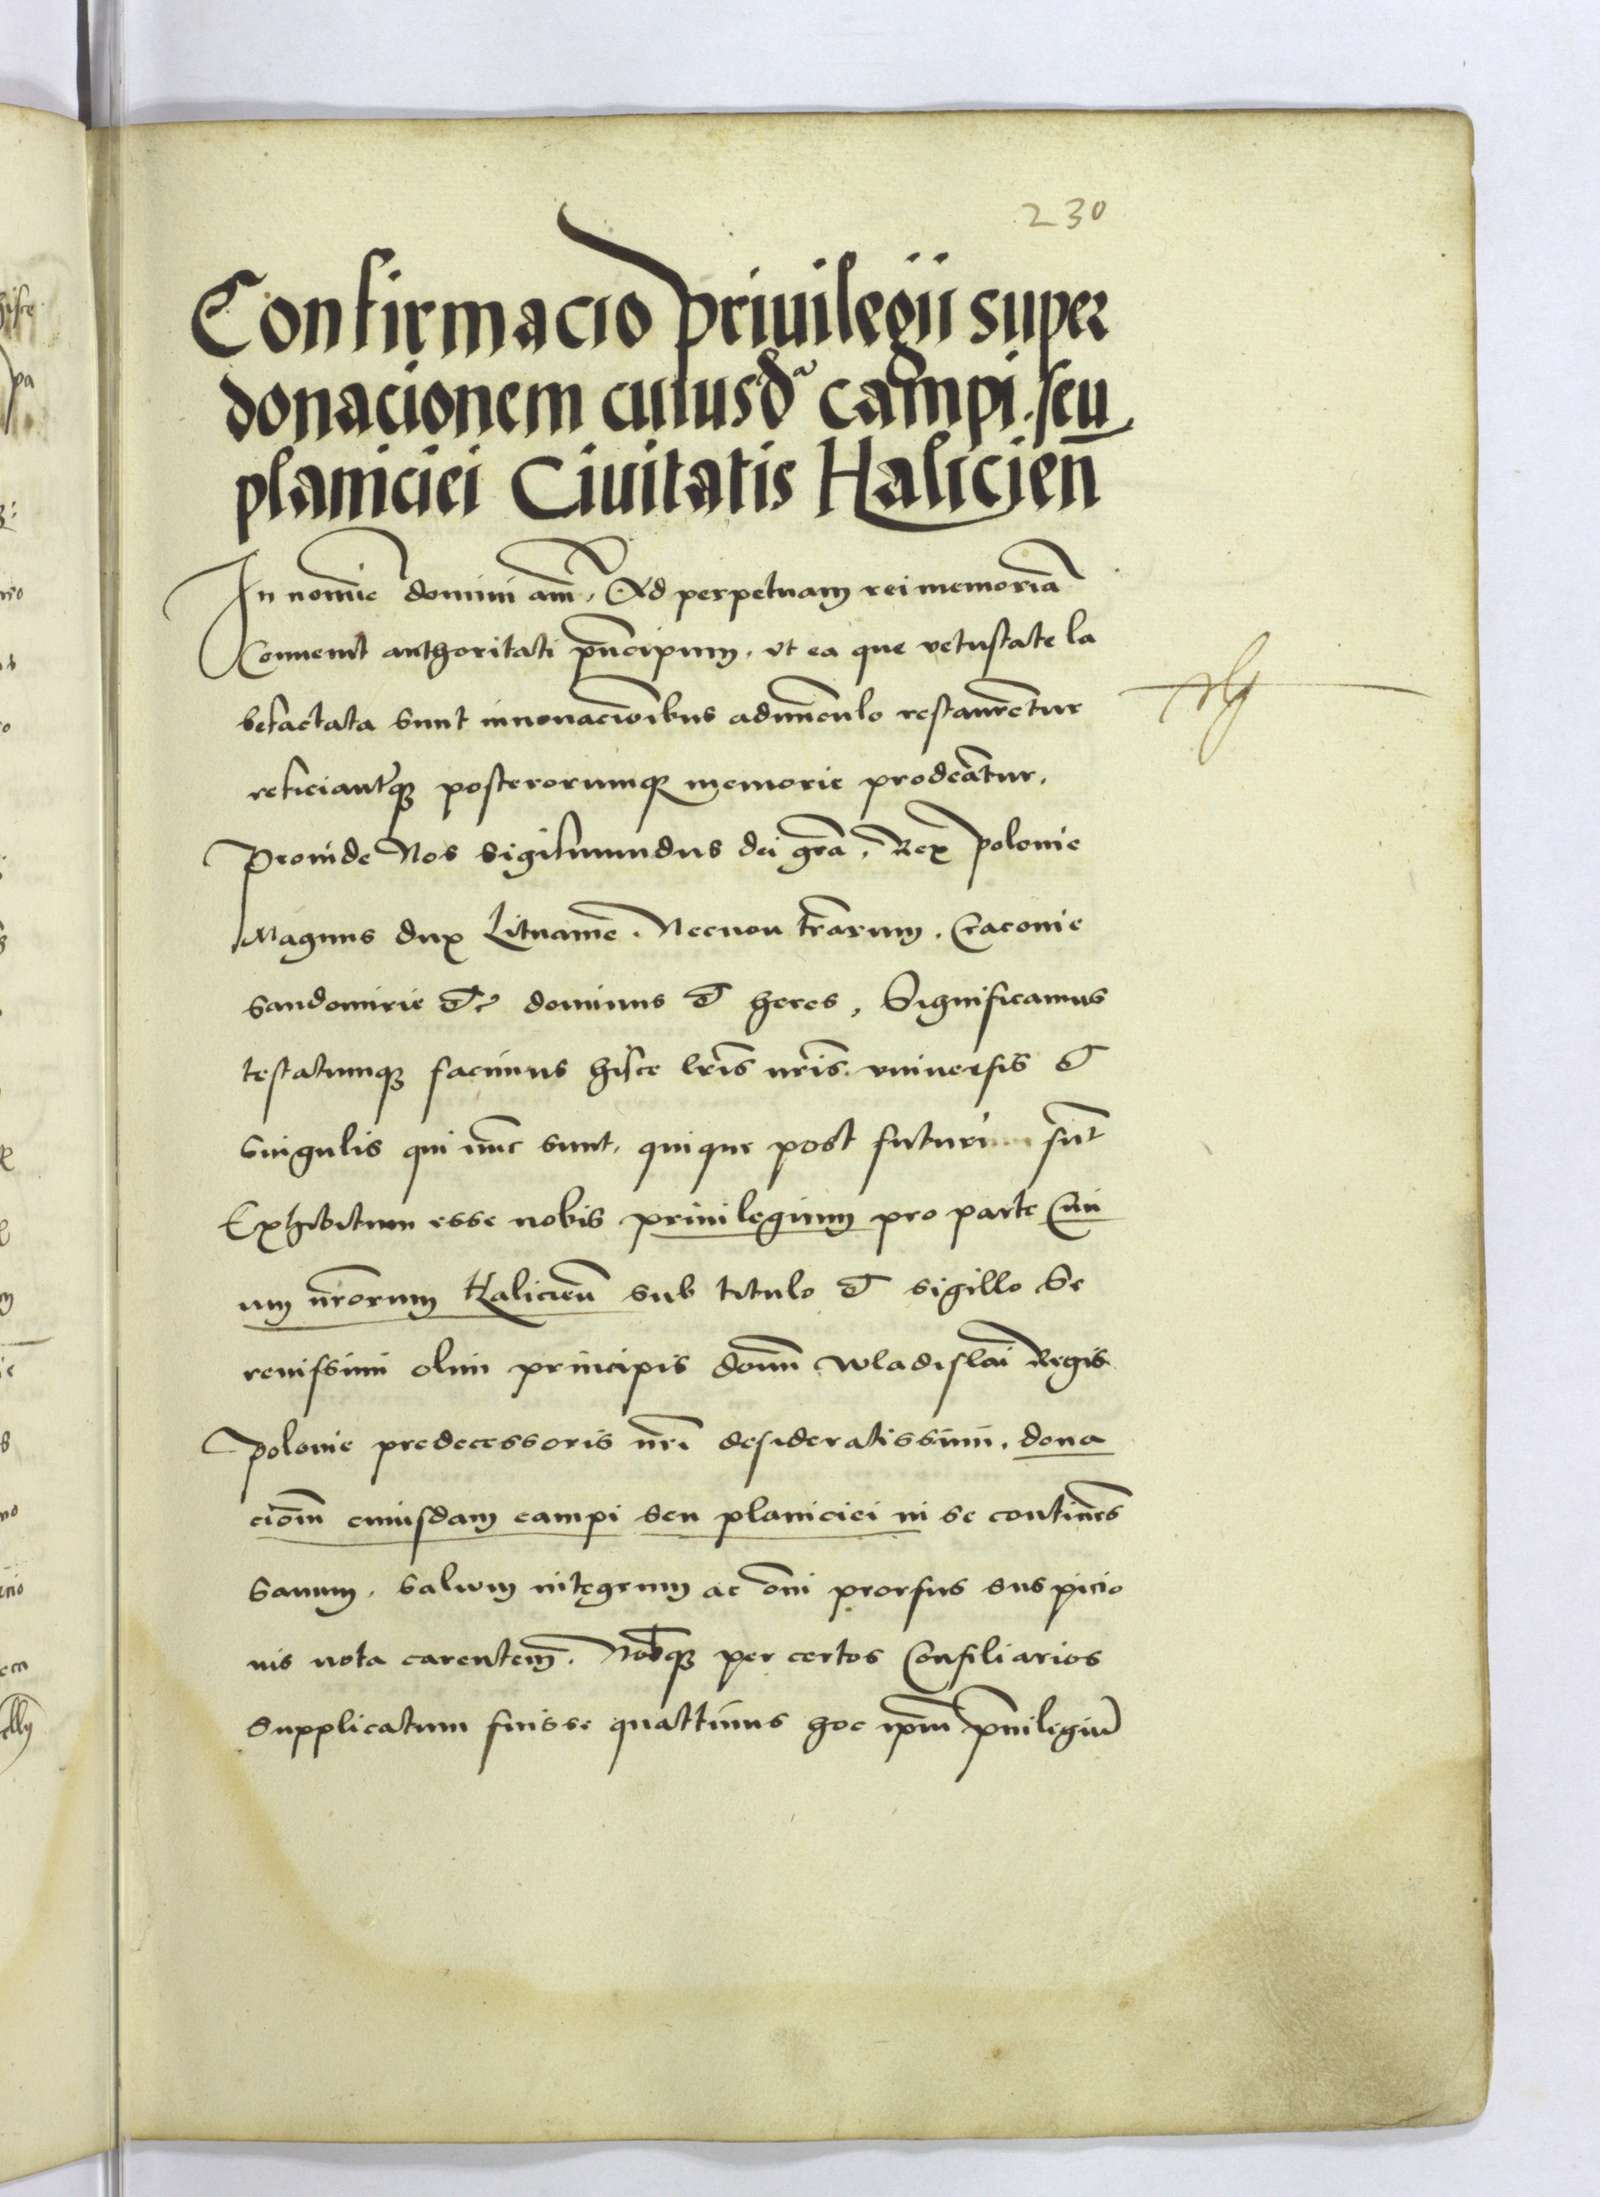 230
Confirmacio privilegii super
donacionem cuiusdã campi seu
planiciei Civitatis Halicien̄
In nomīe domini am̄. Ad perpetuam rei memoriā
Convenit authoritati pn̄cipum, ut ea que vetustate la
befactata sunt innovaciōibus adimīculo restaurētur
reficiantq̄ꝫ posterorumqꝫ memorie prodeātur.
Proinde Nos Sigismundus dei grā. Rex Polonie
Magnus dux Lituanie. Necnon trārum. Cracovie
Sandomirie &c dominus & heres, Significamus
testatumqꝫ facimus hisce lrīs nrīs universis &
singulis qui nūc sunt, quique post futuri sūt
Exhibitum esse nobis privilegium pro parte Civi
um nr̄orum Halicien̄ sub titulo & sigillo Se
renissimi olim principis domī Wladislai Regis
Polonie predecessoris nrī desideratissimi, dona
ciōm cuiusdam campi seu planiciei in se continēs
Sanum, salvum integrum ac om̄i prorsus suspicio
nis nota carentem̄. Nobqꝫ per certos Consiliarios
Supplicatum fuisse quattinus hoc ipm̄ pvilegiū